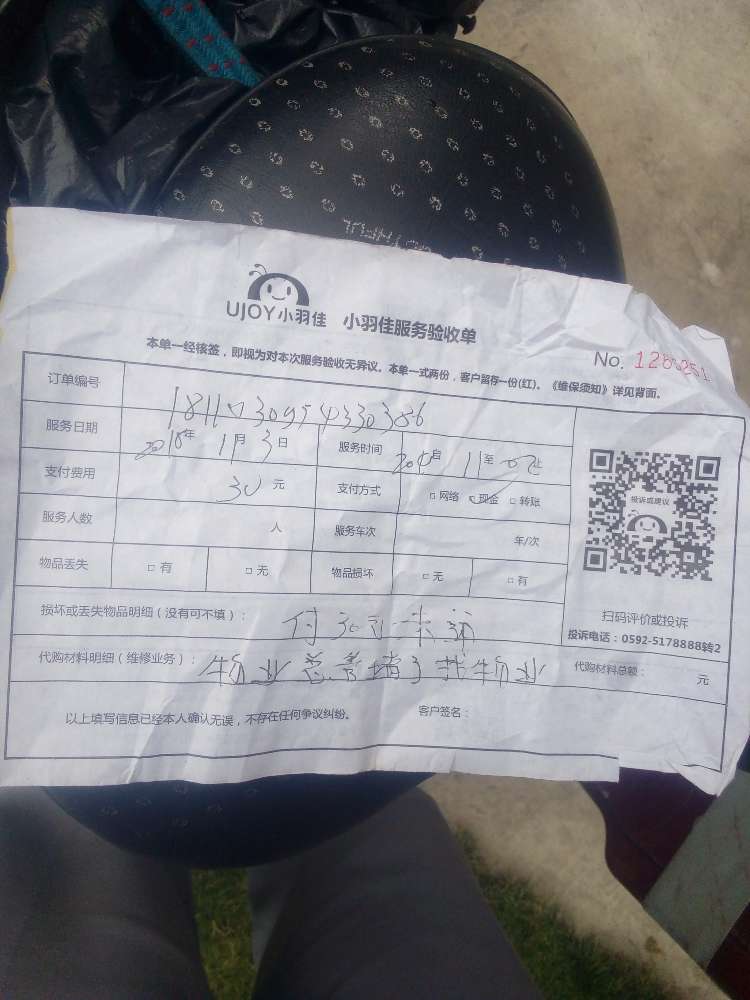 UJOY小羽佳 小羽佳服务验收单
本单一经核签，即视为对本次服务验收无异议。本单一式两份，客户留存一份(红)。《维保须知》详见背面。
No.
订单编号
服务日期 2018年 11月 3日 服务时间 自 11至 止
支付费用 30 元 支付方式 □ 网络 □ 现金 □ 转账
服务人数 人 服务车次 年/次
物品丢失 □ 有 □ 无 物品损坏 □ 无 □ 有
投诉或建议
扫码评价或投诉
投诉电话：0592-5178888转2
损坏或丢失物品明细（没有可不填）： 付30元
代购材料明细（维修业务）： 物业总管堵了找物业
代购材料总额： 元
以上填写信息已经本人确认无误，不存在任何争议纠纷。 客户签名：